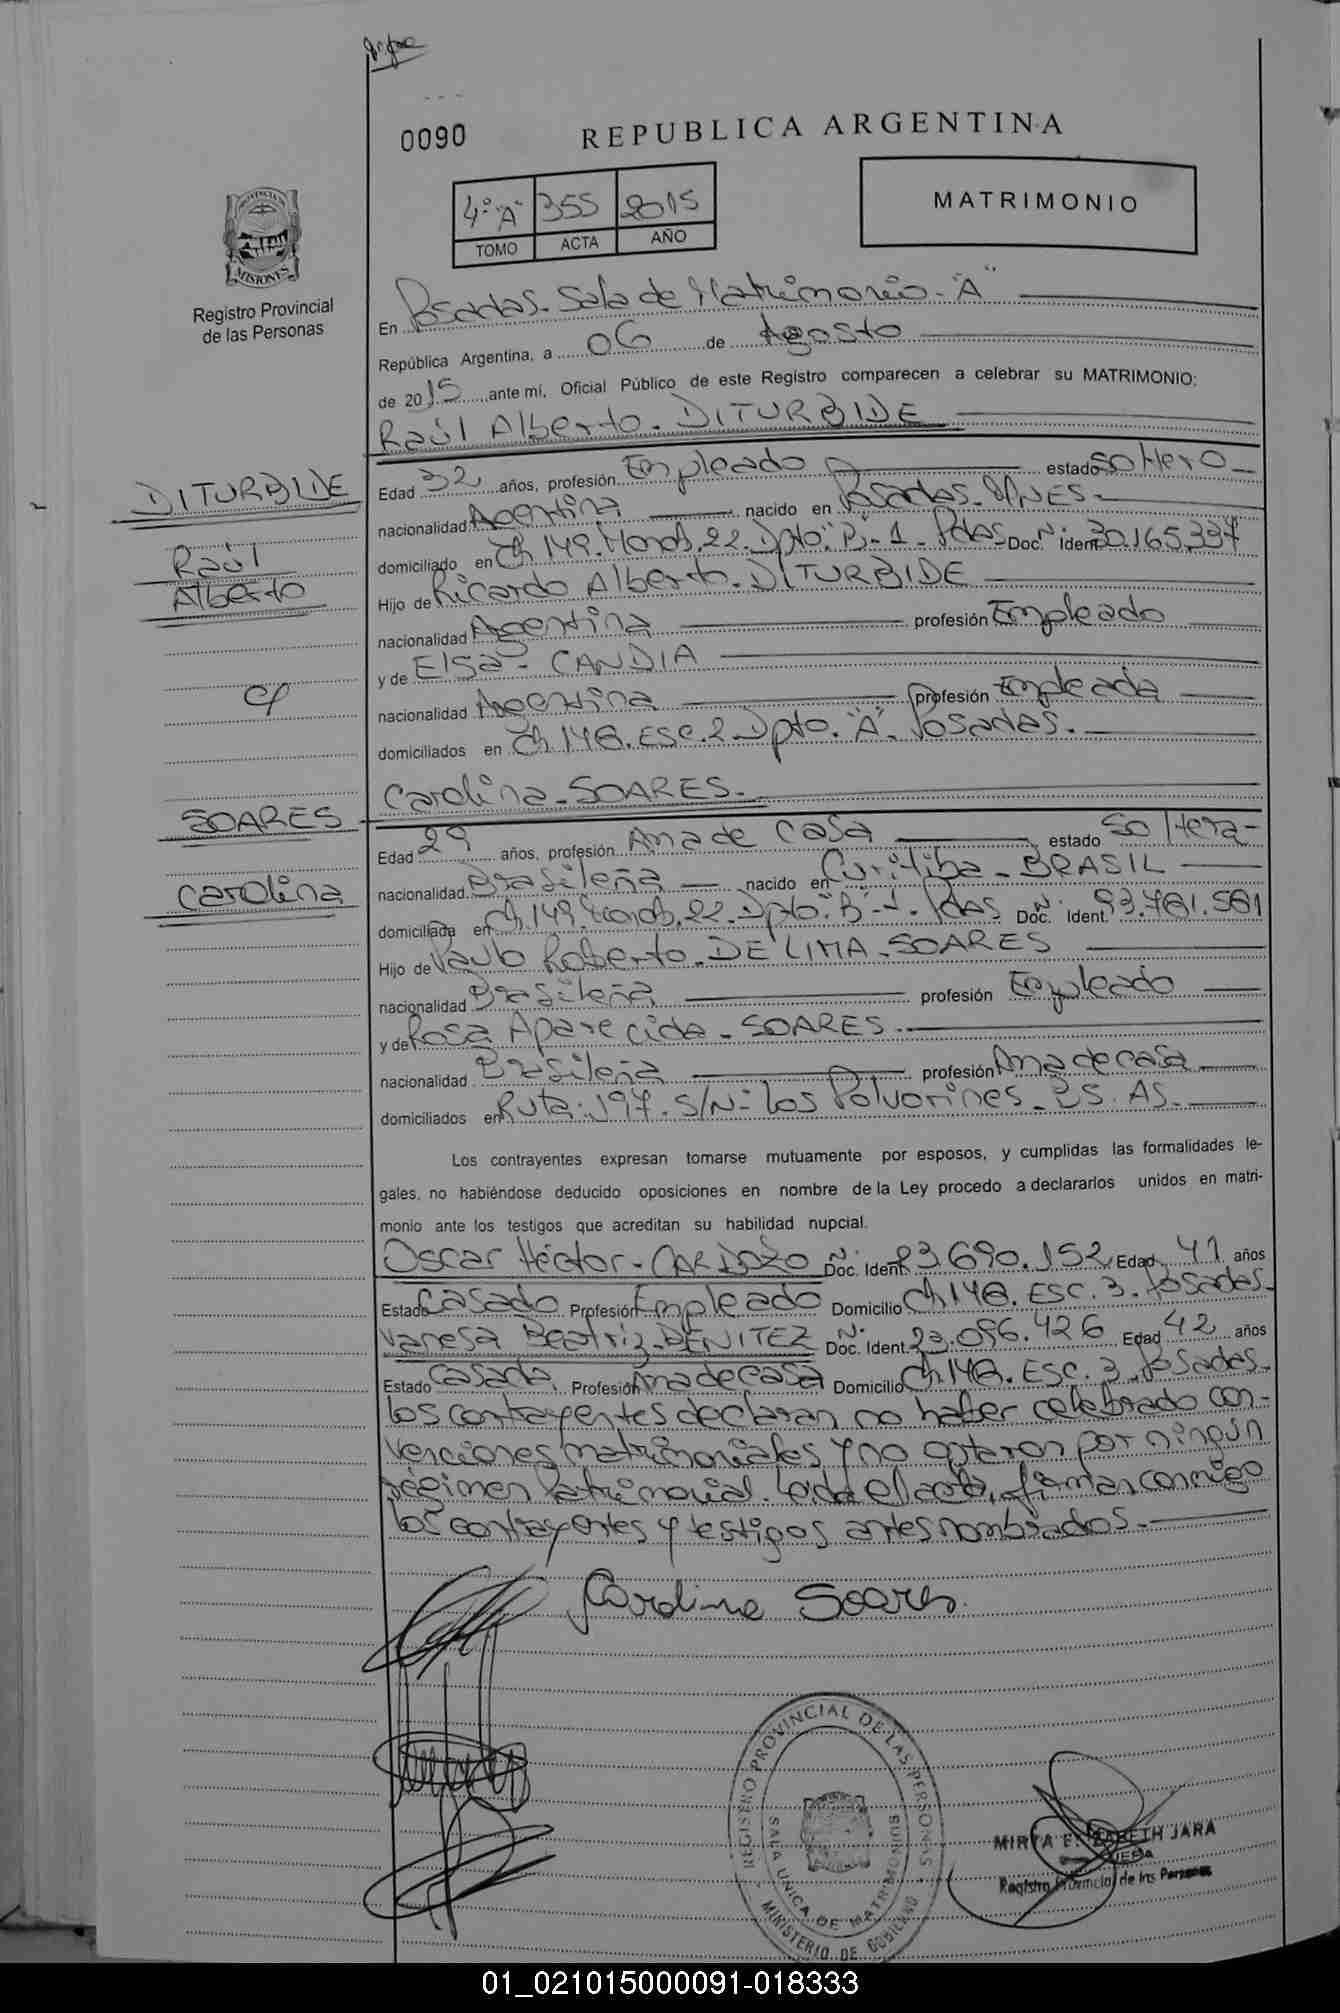 0090
REPUBLICA ARGENTINA
4º "A" 355 2015
TOMO ACTA AÑO
MATRIMONIO
PROVINCIA DE
MISIONES
Registro Provincial
de las Personas
En Posadas. Sala de Matrimonio. "A"
República Argentina, a 06 de Agosto
de 2015 ante mí, Oficial Público de este Registro comparecen a celebrar su MATRIMONIO:
Raúl Alberto. DITURBIDE
DITURBIDE
Raúl
Alberto
c/
SOARES
Carolina
Edad 32 años, profesión Empleado estado soltero
nacionalidad Argentina nacido en Posadas. MNES.
domiciliado en Ch 149. Monob. 22. Dpto. "B"- 1. Pdas Doc. Ident. Nº 30.165.337
Hijo de Ricardo Alberto. DITURBIDE
nacionalidad Argentina profesión Empleado
y de Elsa - CANDIA
nacionalidad Argentina profesión Empleada
domiciliados en Ch 148. Esc. 2. Dpto. "A". Posadas.
Carolina - SOARES.
Edad 29 años, profesión Ama de casa estado soltera
nacionalidad Brasileña nacido en Curitiba - BRASIL
domiciliada en Ch. 149. Monob. 22. Dpto. "B"-1. Pdas Doc. Ident. Nº 93.781.581
Hijo de Paulo Roberto. DE LIMA - SOARES
nacionalidad Brasileña profesión Empleado
y de Rosa Aparecida - SOARES.
nacionalidad Brasileña profesión Ama de casa
domiciliados en Ruta. 197. S/Nº Los Polvorines. BS. AS.
Los contrayentes expresan tomarse mutuamente por esposos, y cumplidas las formalidades le-
gales, no habiéndose deducido oposiciones en nombre de la Ley procedo a declararlos unidos en matri-
monio ante los testigos que acreditan su habilidad nupcial.
Oscar Héctor - CARDOZO Doc. Ident. Nº 23.690.152 Edad 41 años
Estado Casado Profesión Empleado Domicilio Ch 148. Esc. 3. Posadas.
Vanesa Beatriz - BENITEZ Doc. Ident. Nº 23.096.426 Edad 42 años
Estado Casada. Profesión Ama de casa Domicilio Ch 148. Esc. 3. Posadas.
los contrayentes declaran no haber celebrado con-
venciones matrimoniales y no optaron por ningún
régimen patrimonial. Leída el acta, firman conmigo
los contrayentes y testigos antes nombrados.
Carolina Soares
REGISTRO PROVINCIAL DE LAS PERSONAS
SALA UNICA DE MATRIMONIOS
MINISTERIO DE GOBIERNO
MIRTA ELIZABETH JARA
Registro Provincial de las Personas
01_021015000091-018333